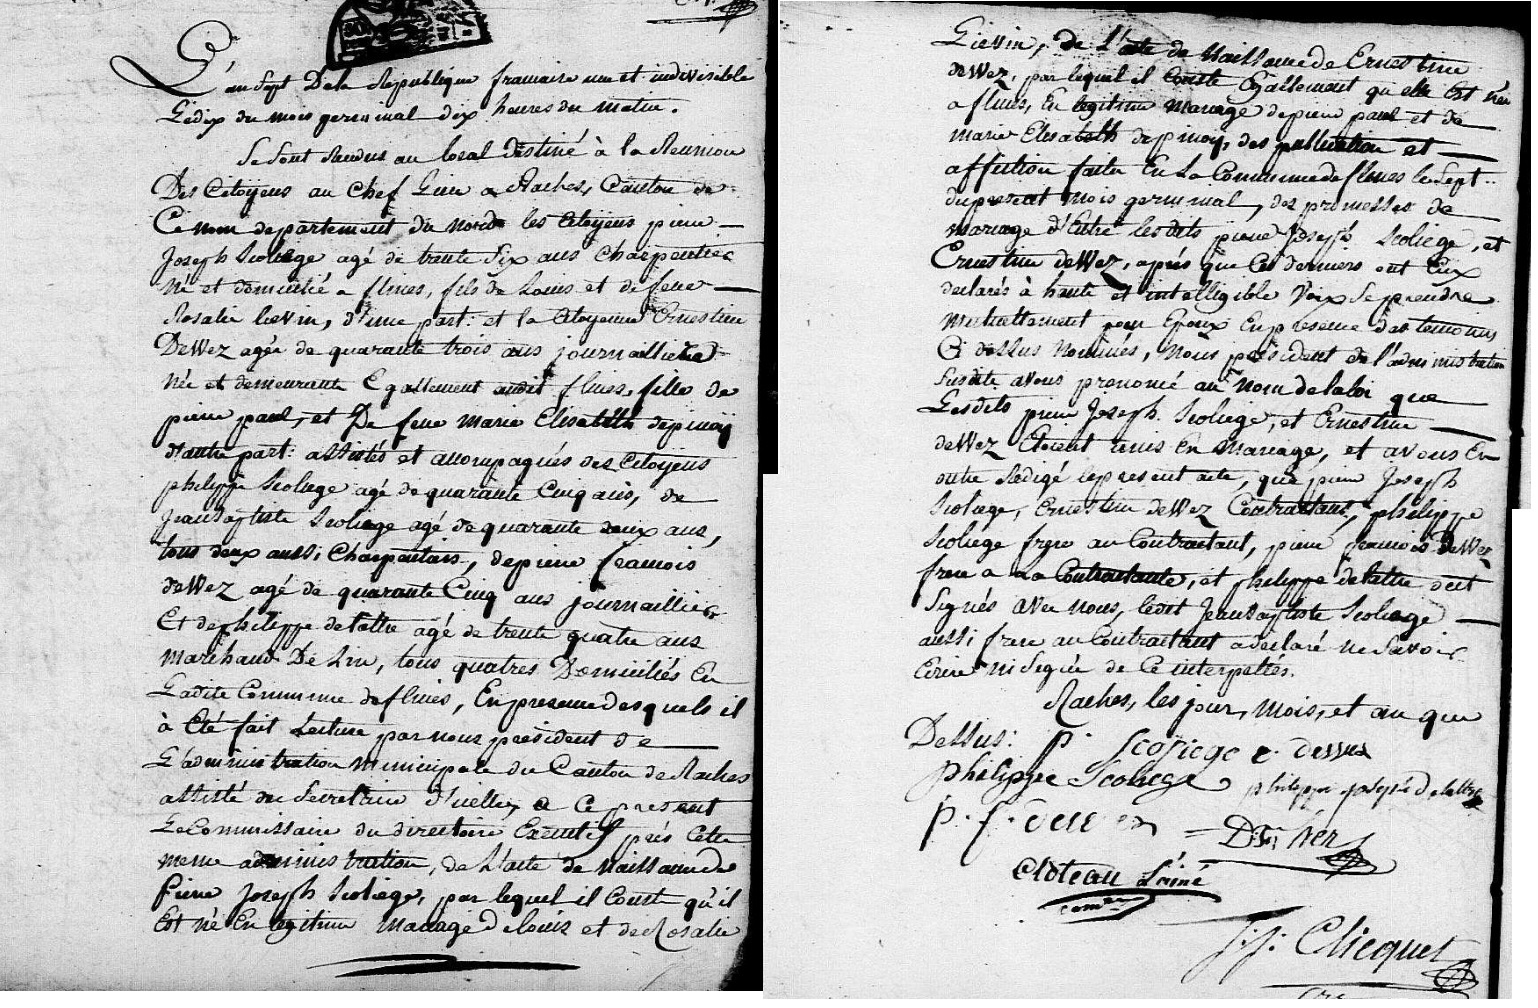 L'an Sept De la Republique francaise une et indivisible
Le dix du mois germinal dix heures du matin.
Se sont Rendus au local destiné à la Reunion
Des Citoyens au chef Lieu a Raches, Canton de
Ce nom departement du Nord les Citoyens pierre
Joseph Scoliege agé de trente Six ans Charpentier
né et domicilié a flines, fils de Louis et de feue
Rosalie lievin, d'une part: et la Citoyenne Ernestine
DeWez agée de quarante trois ans journailliere
née et demeurante Egallement audit flines, fille de
pierre paul, et De feue marie Elisabeth depinoij
d'autre part: assistés et accompagnés des Citoyens
philippe Scoliege agé de quarante Cinq ans, de
Jean Baptiste Scoliege agé de quarante deux ans,
tous deux aussi Charpentiers, de pierre francois
deWez agé de quarante Cinq ans journaillier
Et de philippe delattre agé de trente quatre ans
marchand De Lin, tous quatres Domiciliés En
Ladite Commune de flines, En presence desquels il
à Eté fait Lecture par nous président de
L'administration Municipale du Canton de Raches
assisté du Secretaire d'icelle, et Ce present
Le Commissaire du directoire Executif près Cette
meme administration, de L'acte de Naissance de
Pierre Joseph Scoliege, par lequel il Conste qu'il
Est né En legitime Mariage de Louis et de Rosalie
Lievin, de L'acte de Naissance de Ernestine
deWez, par lequel il Conste Egallement qu'elle Est née
a flines, En legitime mariage de pierre paul et de
marie Elisabeth depinoij, des publication et
affiction faite En La Commune de flines le Sept
du present mois germinal, des promesses de
mariage d'Entre lesdits pierre Joseph Scoliege, et
Ernestine deWez, après que Ces derniers ont Eux
declarés à haute et intelligible Voix Se prendre
Mutuellement pour Epoux En presence des temoins
Ci dessus Nommés, Nous président de l'administration
susdite avons prenoncé au Nom de la loi que
Lesdits pierre Joseph Scoliege, et Ernestine
deWez Etoient unis En Mariage, et avons En
outre Redigé le present acte, que pierre Joseph
Scoliege, Ernestine deWez Contractans, philippe
Scoliege frere au Contractant, pierre francois DeWez
frere a la Contractante, et philippe delattre ont
Signés avec nous, ledit Jean Baptiste Scoliege
aussi frere au Contractant a declaré ne Savoir
Ecrire ni Signer de Ce interpellés.
Raches, les jour, mois, et an que
Dessus: p. Scoliege e. dewez
philippe Scoliege philippe joseph Delattre
p. f. dewez
Cloteau L'ainé
comre
J. J. Clicquet